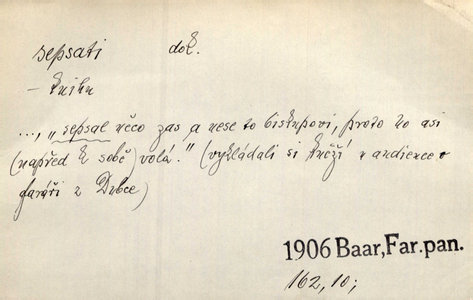 sepsati dok.
– knihu
..., „sepsal něco zas a nese to biskupovi, proto ho asi
(napřed k sobě) volá." (vykládali si kněží v audience o
faráři z Dubce)
1906 Baar, Far. pan.
162, 10;